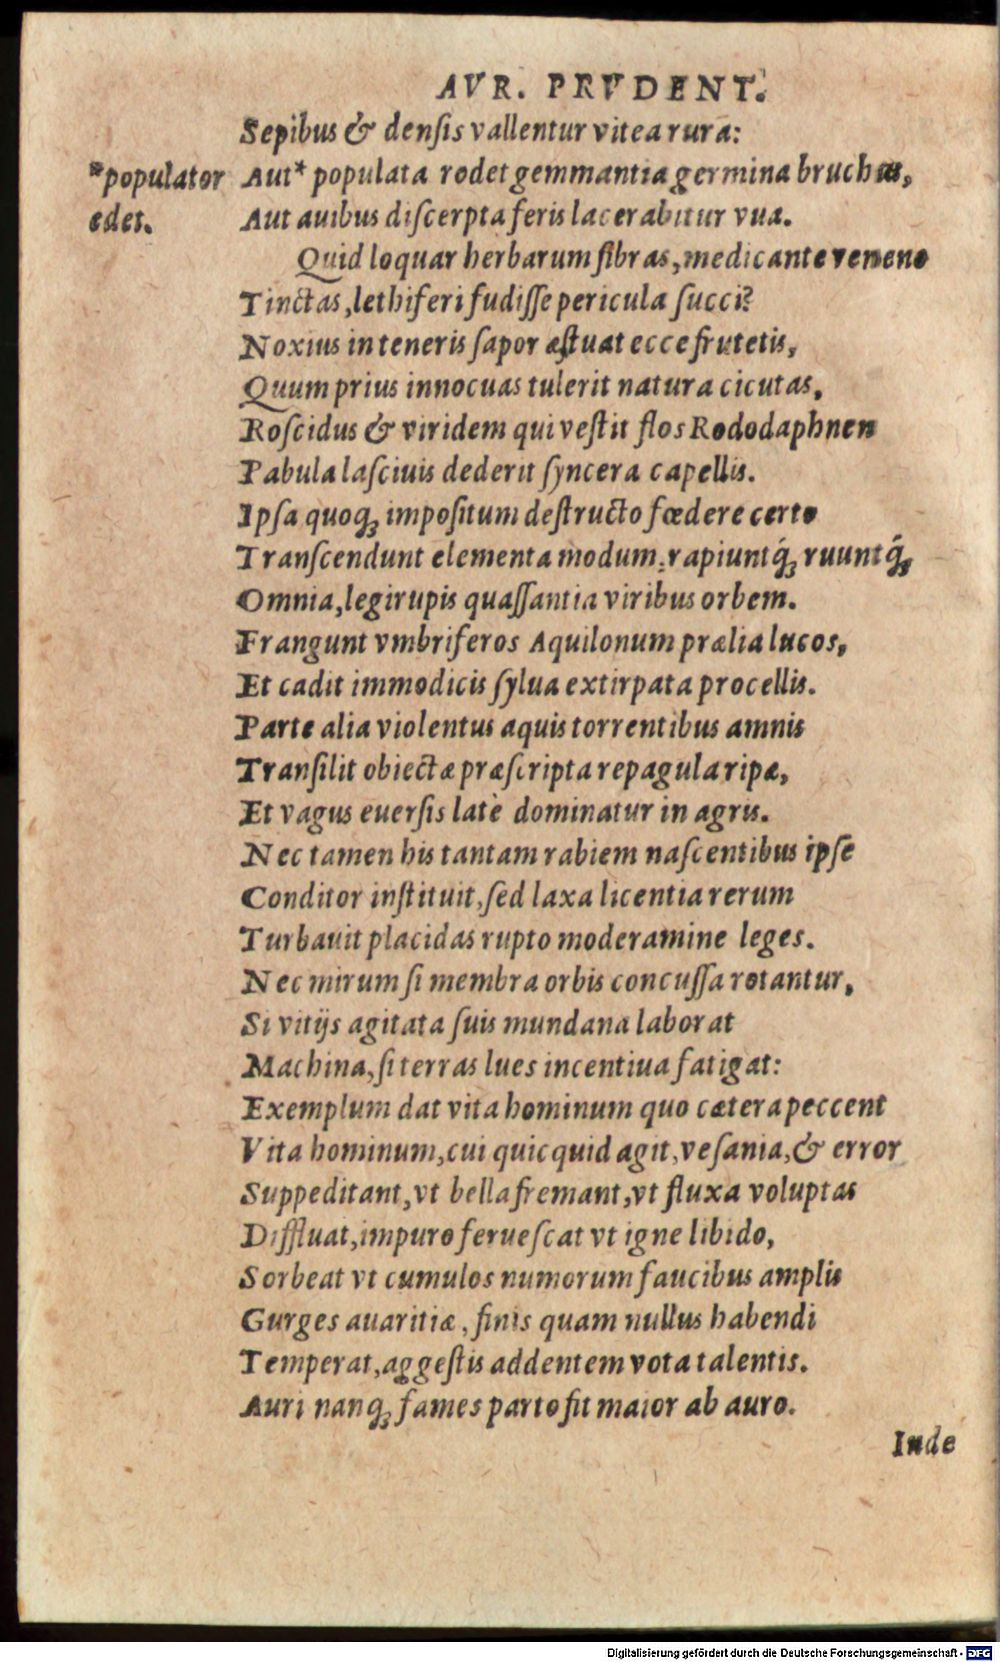 AVR. PRVDENT.
Sepibus & densis vallentur vitea rura:
*populator edet.
Aut* populata rodet gemmantia germina bruchus,
Aut auibus discerpta feris lacerabitur vua.
Quid loquar herbarum fibras, medicante veneno
Tinctas, lethiferi fudisse pericula succi?
Noxius in teneris sapor æstuat ecce frutetis,
Quum prius innocuas tulerit natura cicutas,
Roscidus & viridem qui vestit flos Rododaphnen
Pabula lasciuis dederit syncera capellis.
Ipsa quoq; impositum destructo fœdere certo
Transcendunt elementa modum: rapiuntq́; ruuntq́;
Omnia, legirupis quassantia viribus orbem.
Frangunt vmbriferos Aquilonum prælia lucos,
Et cadit immodicis sylua extirpata procellis.
Parte alia violentus aquis torrentibus amnis
Transilit obiectæ præscripta repagula ripæ,
Et vagus euersis latè dominatur in agris.
Nec tamen his tantam rabiem nascentibus ipse
Conditor instituit, sed laxa licentia rerum
Turbauit placidas rupto moderamine leges.
Nec mirum si membra orbis concussa rotantur,
Si vitijs agitata suis mundana laborat
Machina, si terras lues incentiua fatigat:
Exemplum dat vita hominum quo cætera peccent
Vita hominum, cui quicquid agit, vesania, & error
Suppeditant, vt bella fremant, vt fluxa voluptas
Diffluat, impuro feruescat vt igne libido,
Sorbeat vt cumulos numorum faucibus amplis
Gurges auaritiæ, finis quam nullus habendi
Temperat, aggestis addentem vota talentis.
Auri nanq; fames parto fit maior ab auro.
Inde
Digitalisierung gefördert durch die Deutsche Forschungsgemeinschaft - DFG